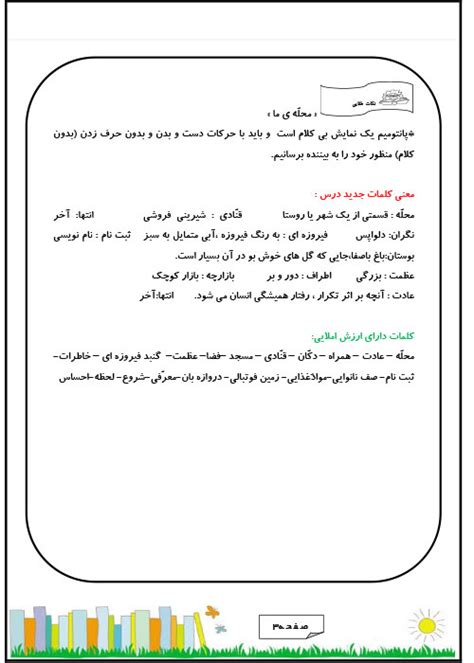 نکات طلایی
« محلّه ی ما »
*پانتومیم یک نمایش بی کلام است و باید با حرکات دست و بدن و بدون حرف زدن (بدون
کلام) منظور خود را به بیننده برسانیم.
معنی کلمات جدید درس :
محلّه : قسمتی از یک شهر یا روستا قنّادی : شیرینی فروشی انتها: آخر
نگران: دلواپس فیروزه ای : به رنگ فیروزه ،آبی متمایل به سبز ثبت نام : نام نویسی
بوستان:باغ باصفا،جایی که گل های خوش بو در آن بسیار است.
عظمت : بزرگی اطراف : دور و بر بازارچه : بازار کوچک
عادت : آنچه بر اثر تکرار ، رفتار همیشگی انسان می شود. انتها:آخر
کلمات دارای ارزش املایی:
محلّه – عادت – همراه – دکّان – قنّادی – مسجد -فضا- عظمت- گنبد فیروزه ای – خاطرات-
ثبت نام- صف نانوایی-موادّغذایی- زمین فوتبالی- دروازه بان-معرّفی-شروع- لحظه-احساس
صفحه۳